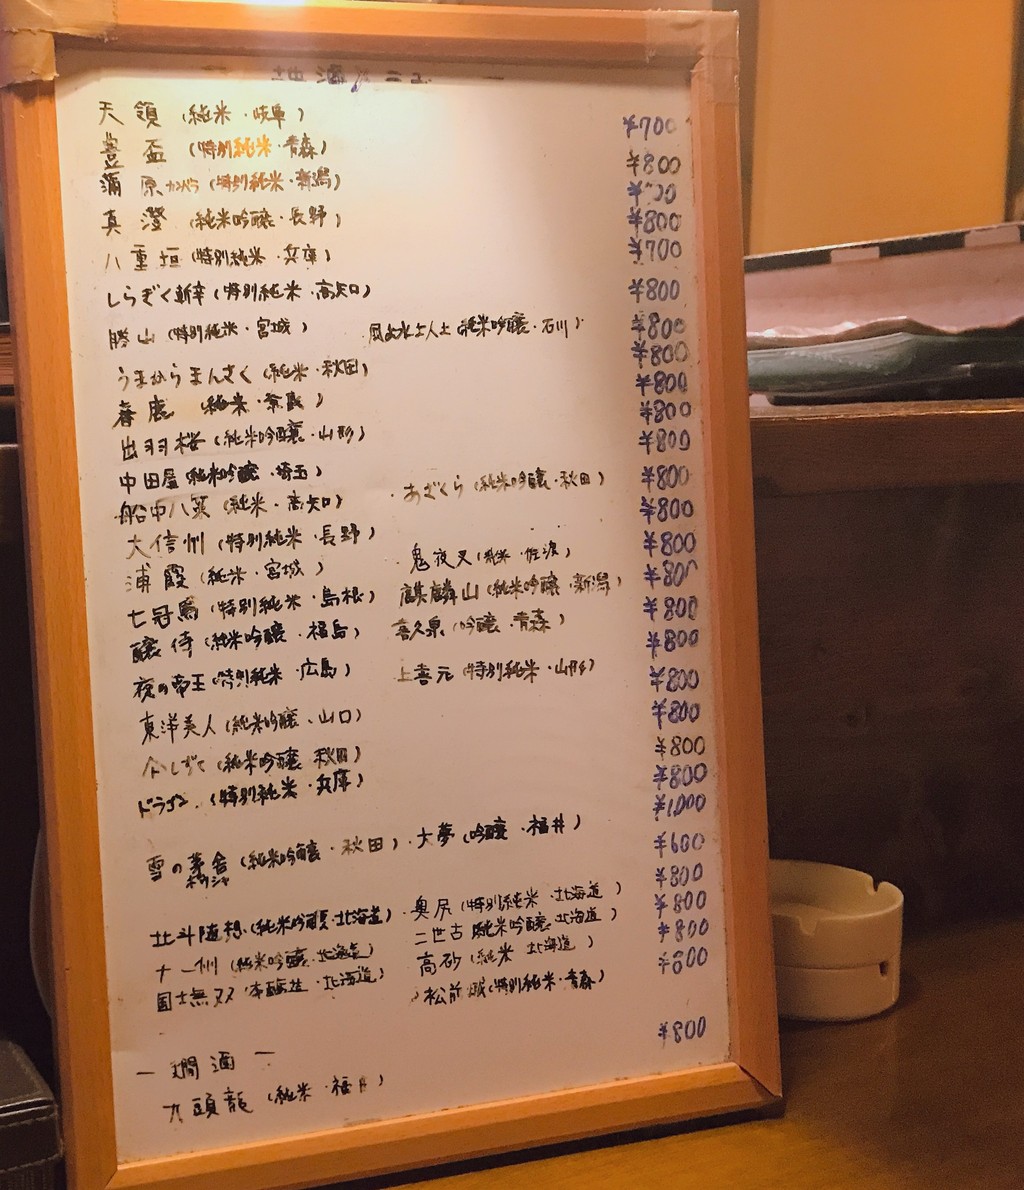 地酒メニュー
天領 (純米・岐阜) ¥700
豊盃 (特別純米・青森) ¥800
蒲原カンバラ (特別純米・新潟)
真澄 (純米吟醸・長野) ¥800
八重垣 (特別純米・兵庫) ¥700
しらぎく (特別純米・高知) ¥800
勝山 (特別純米・宮城) (純米吟醸・石川) ¥800
¥800
うまからまんさく (純米・秋田) ¥800
春鹿 (純米・奈良) ¥800
出羽桜 (純米吟醸・山形) ¥800
中田屋 (純米吟醸・埼玉) ¥800
船中八策 (純米・高知) ・あざくら (純米吟醸・秋田) ¥800
大信州 (特別純米・長野) ¥800
浦霞 (純米・宮城) ・鬼夜叉 (純米・佐渡) ¥800
七冠馬 (特別純米・島根) 麒麟山 (純米吟醸・新潟) ¥800
醸侍 (純米吟醸・福島) 喜久泉 (吟醸・青森) ¥800
夜の帝王 (特別純米・広島) 上喜元 (特別純米・山形) ¥800
東洋美人 (純米吟醸・山口) ¥800
(純米吟醸 秋田) ¥800
ドラゴン (特別純米・兵庫) ¥800
¥1,000
雪の茅舎ボウシャ (純米吟醸・秋田)・大夢 (吟醸・福井) ¥600
¥800
北斗随想 (純米吟醸・北海道) ・奥尻 (特別純米・北海道) ¥800
十一州 (純米吟醸・北海道) 二世古 (純米吟醸・北海道) ¥800
国士無双 (本醸造・北海道) 高砂 (純米 北海道) ¥800
(特別純米・青森)
ー燗酒ー ¥800
九頭龍 (純米・福井)